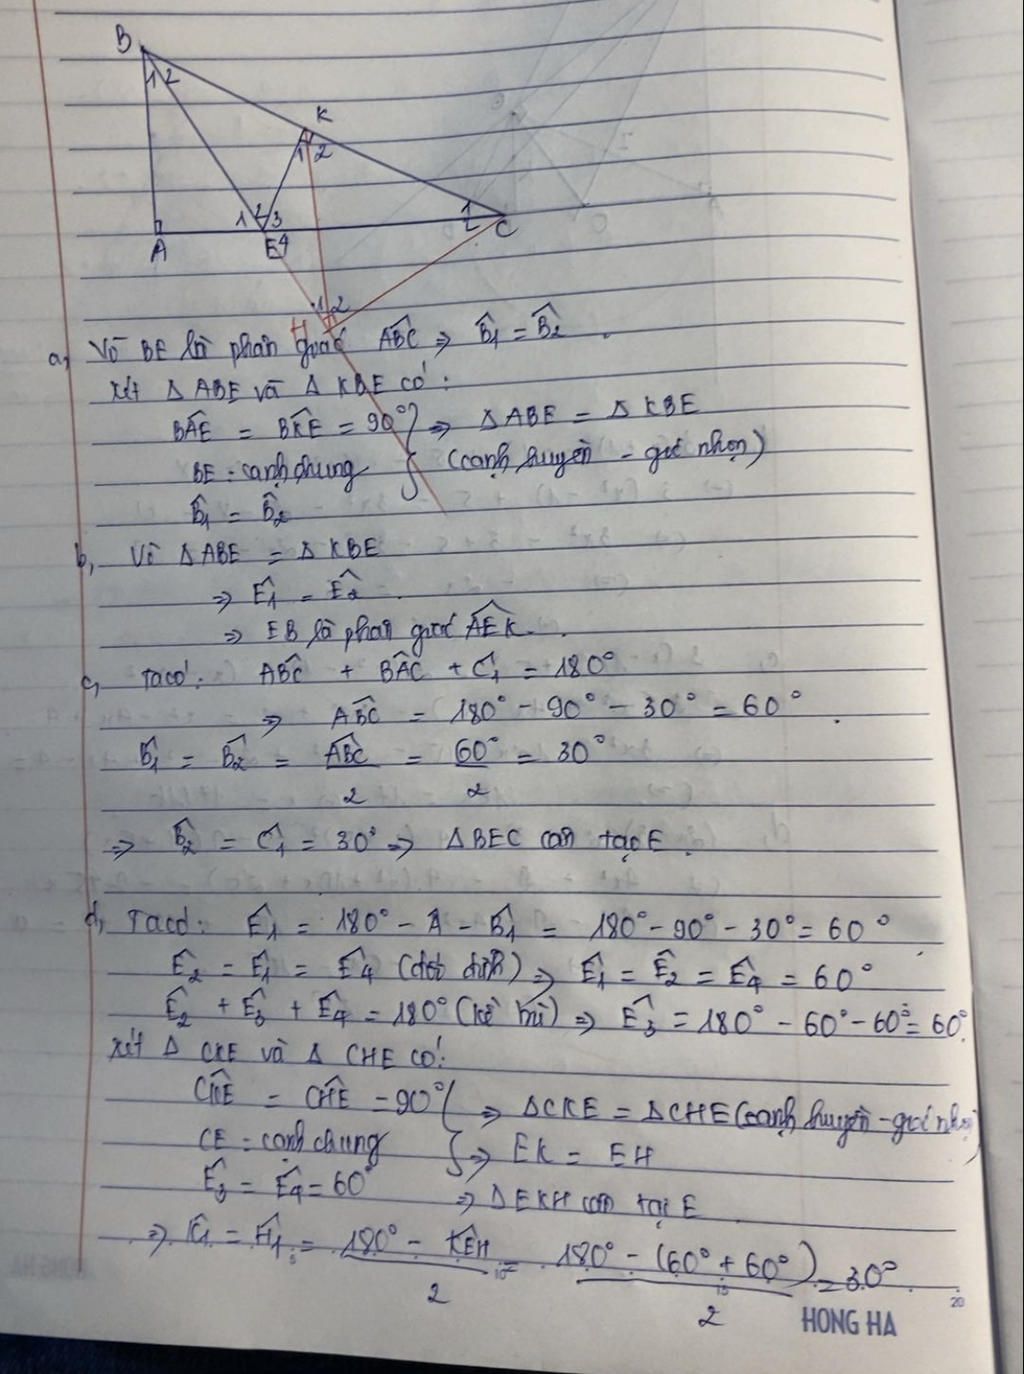 B
1 2
K
1 2
1 2 3
1
2
A
E 4
C
1 2
H
a, Vì BE là phân giác ABC̑ => B̂1 = B̂2.
Xét Δ ABE và Δ KBE có:
BÂE = BK̂E = 90° } => Δ ABE = Δ KBE
BE: cạnh chung (cạnh huyền - góc nhọn)
B̂1 = B̂2
b, Vì Δ ABE = Δ KBE
=> Ê1 = Ê2
=> EB là phân giác AÊK.
c, Ta có: AB̂C + BÂC + Ĉ1 = 180°
=> AB̂C = 180° - 90° - 30° = 60°.
B̂1 = B̂2 = AB̂C / 2 = 60° / 2 = 30°
=> B̂2 = Ĉ1 = 30° => Δ BEC cân tại E.
d, Ta có: Ê1 = 180° - Â - B̂1 = 180° - 90° - 30° = 60°
Ê2 = Ê1 = Ê4 (đối đỉnh) => Ê1 = Ê2 = Ê4 = 60°
Ê2 + Ê3 + Ê4 = 180° (kề bù) => Ê3 = 180° - 60° - 60° = 60°.
Xét Δ CKE và Δ CHE có:
CK̂E = CĤE = 90° } => Δ CKE = Δ CHE (cạnh huyền - góc nhọn)
CE: cạnh chung => EK = EH
Ê3 = Ê4 = 60° => Δ EKH cân tại E
=> K̂1 = Ĥ1 = 180° - KÊH / 2 = 180° - (60° + 60°) / 2 = 30°
5 10 15 20
HONG HA